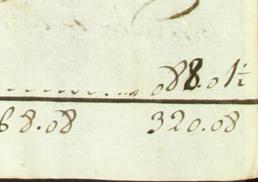 088.01½
68.08 320.08